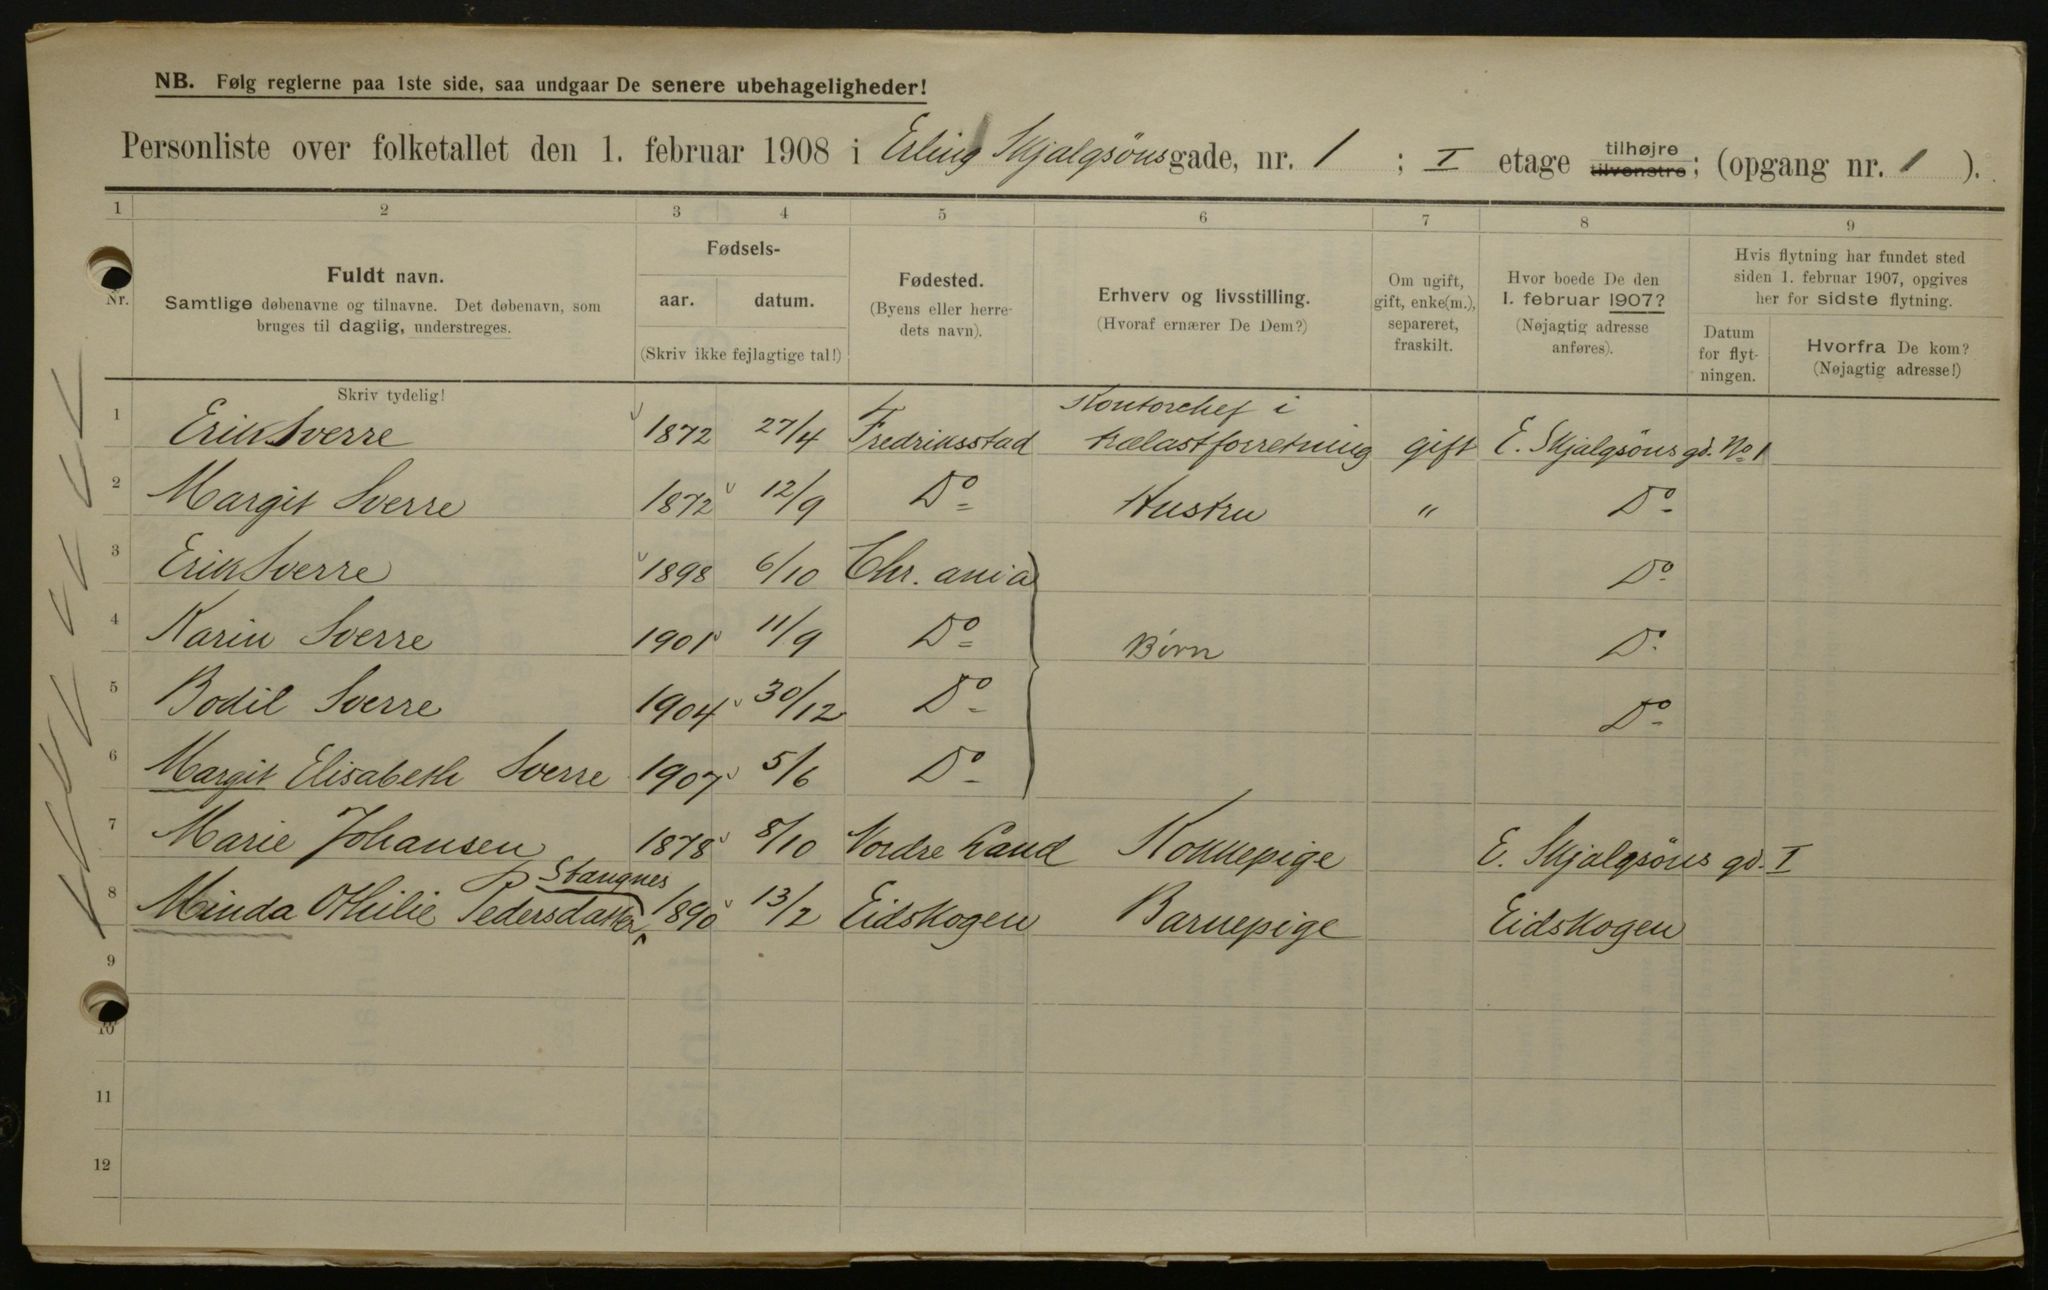 NB. Følg reglerne paa 1ste side, saa undgaar De senere ubehageligheder!
Personliste over folketallet den 1. februar 1908 i Erling Skjalgsöns gade, nr. 1 ; I etage tilhøjre tilvenstre; (opgang nr. 1 ).
1 2 3 4 5 6 7 8 9
Nr.
Fuldt navn.
Samtlige døbenavne og tilnavne. Det døbenavn, som
bruges til daglig, understreges.
Skriv tydelig!
Fødsels-
aar. datum.
(Skriv ikke fejlagtige tal!)
Fødested.
(Byens eller herre-
dets navn).
Erhverv og livsstilling.
(Hvoraf ernærer De Dem?)
Om ugift,
gift, enke(m.),
separeret,
fraskilt.
Hvor boede De den
1. februar 1907?
(Nøjagtig adresse
anføres).
Hvis flytning har fundet sted
siden 1. februar 1907, opgives
her for sidste flytning.
Datum
for flyt-
ningen.
Hvorfra De kom?
(Nøjagtig adresse!)
1 Erik Sverre 1872 27/4 Fredriksstad Kontorchef i trælastforretning gift E. Skjalgsöns gd. No 1
2 Margit Sverre 1872 12/9 Do Hustru " Do
3 Erik Sverre 1898 6/10 Chr. ania Do
4 Karin Sverre 1901 11/9 Do Børn Do
5 Bodil Sverre 1904 30/12 Do Do
6 Margit Elisabeth Sverre 1907 5/6 Do
7 Marie Johansen 1878 8/10 Nordre Land Kokkepige E. Skjalgsöns gd. I
Stangnes
8 Minda Othilie Pedersdatter 1890 13/2 Eidskogen Barnepige Eidskogen
9
10
11
12